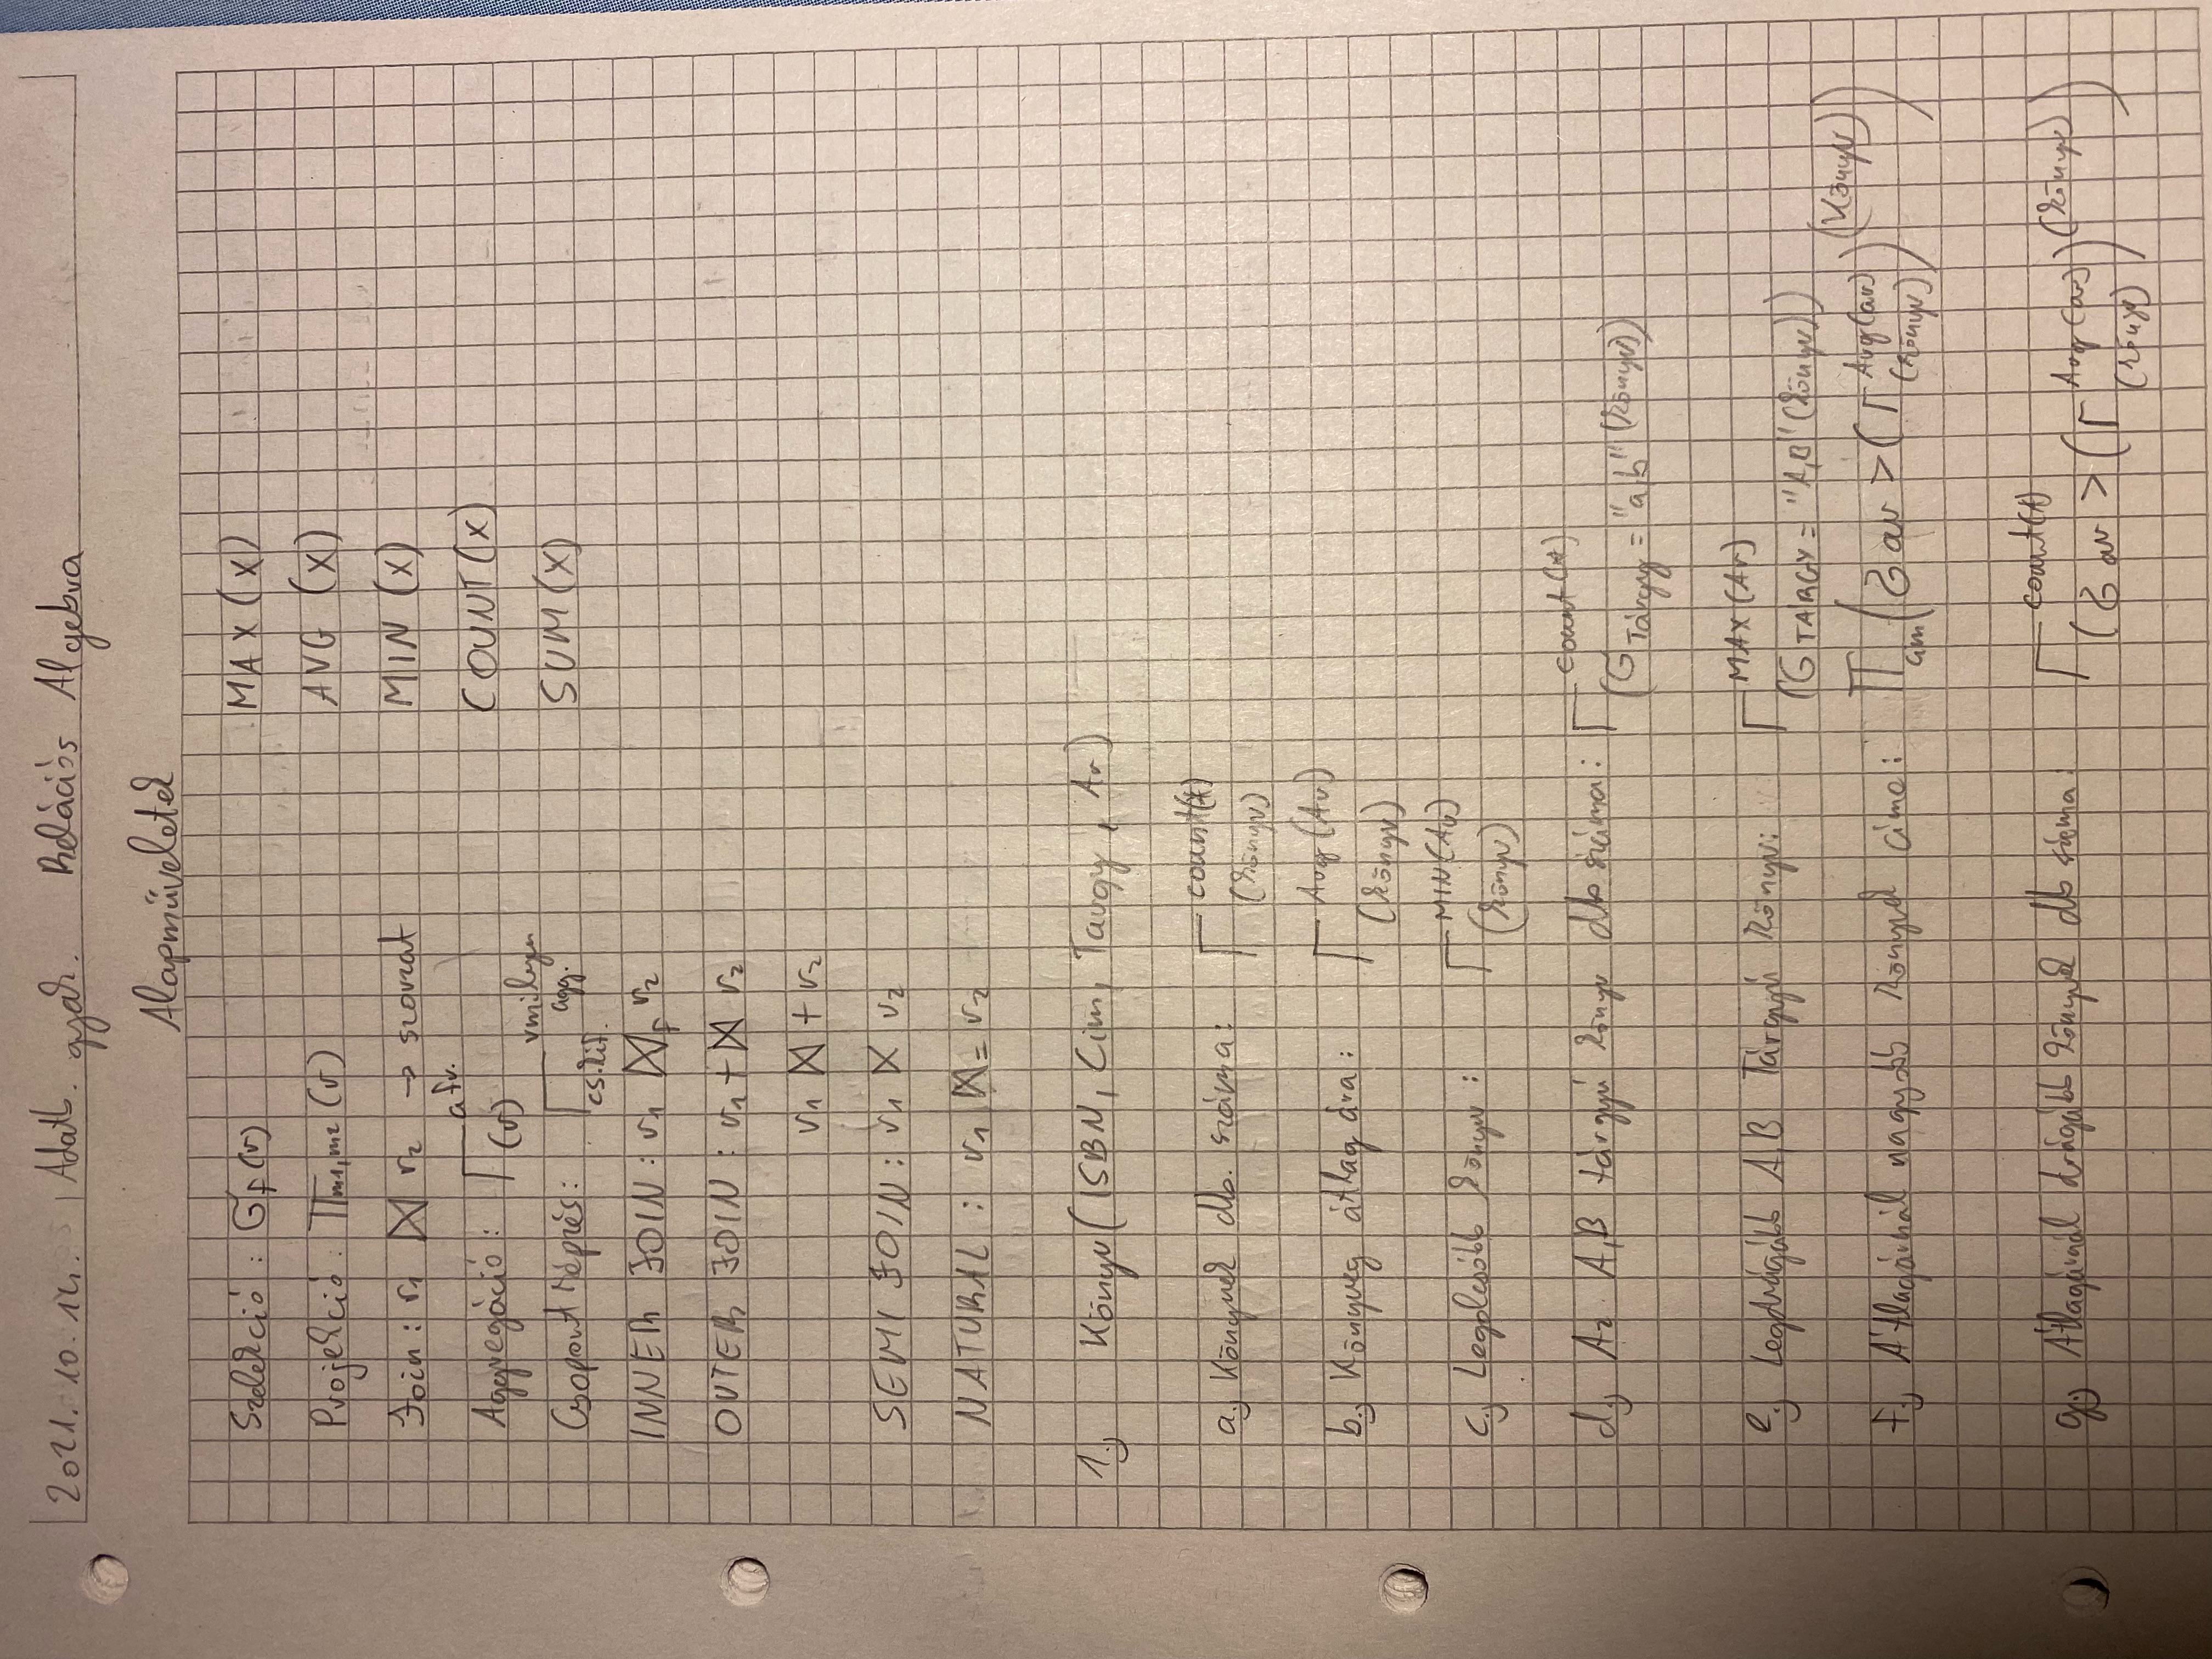 2021. 10. 14. Adatb. gyak. Relációs Algebra
Alapműveletek
Szelekció : σf(r) MAX(X)
Projekció : πm1,m2 (r) AVG (X)
Join : r1 ⋈ r2 → szorzat MIN (X)
Aggregáció : Γ a fv. (r) COUNT(X)
Csoportképzés : Γ vmilyen agg. cs.kif. SUM(X)
INNER JOIN : r1 ⋈F r2
OUTER JOIN : r1 +⋈ r2
r1 ⋈+ r2
SEMI JOIN : r1 ⋉ r2
NATURAL : r1 ⋈= r2
1.) Könyv( ISBN, Cim, Targy, Ar)
a.) Könyvek db. száma : Γ count(*) (könyv)
b.) Könyveg átlag ára : Γ Avg(Ar) (könyv)
c.) Legolcsóbb könyv : Γ MIN(Ar) (könyv)
d.) Az A,B tárgyú könyv db száma : Γ count(*) (σ Tárgy = "a,b" (könyv))
e.) Legdrágább A,B Tárgyú könyv : Γ MAX(Ar) (σ TARGY = "A,B" (könyv))
f.) Átlagárnál nagyobb könyvek címe : π cim (σ ar > (Γ Avg(ar) (könyv)) (Könyv))
g.) Átlagárnál drágább könyvek db száma : Γ count(*) (σ ar > (Γ Avg(ar) (könyv)) (könyv))